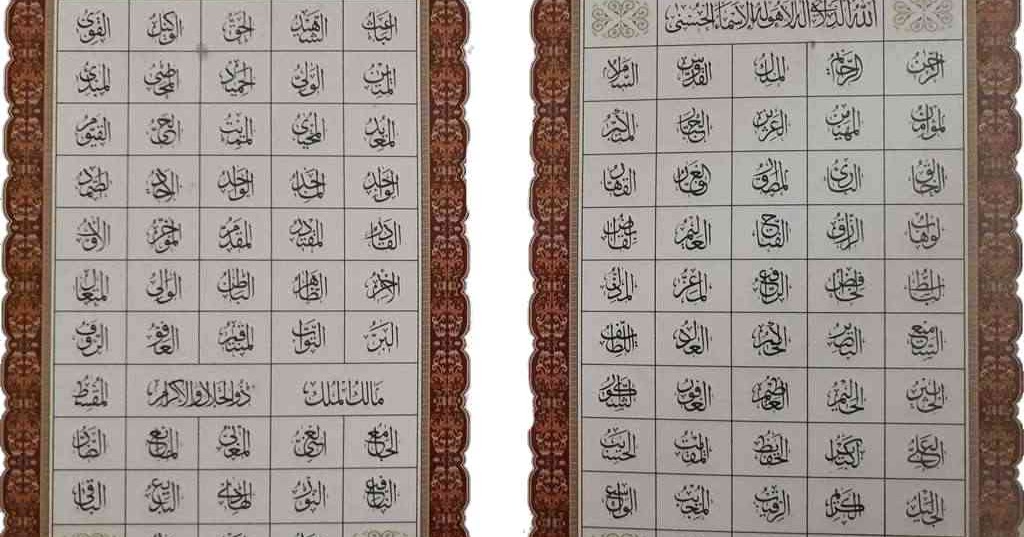 الله الذي لا إله إلا هو له الأسماء الحسنى
الرحمن الرحيم الملك القدوس السلام
المؤمن المهيمن العزيز الجبار المتكبر
الخالق البارئ المصور الغفار القهار
الوهاب الرزاق الفتاح العليم القابض
الباسط الخافض الرافع المعز المذل
السميع البصير الحكم العدل اللطيف
الخبير الحليم العظيم الغفور الشكور
العلي الكبير الحفيظ المقيت الحسيب
الجليل الكريم الرقيب المجيب الواسع
الباعث الشهيد الحق الوكيل القوي
المتين الولي الحميد المحصي المبدئ
المعيد المحيي المميت الحي القيوم
الواجد الماجد الواحد الأحد الصمد
القادر المقتدر المقدم المؤخر الأول
الآخر الظاهر الباطن الوالي المتعال
البر التواب المنتقم العفو الرؤف
مالك الملك ذو الجلال والإكرام المقسط
الجامع الغني المغني المانع الضار
النافع النور الهادي البديع الباقي